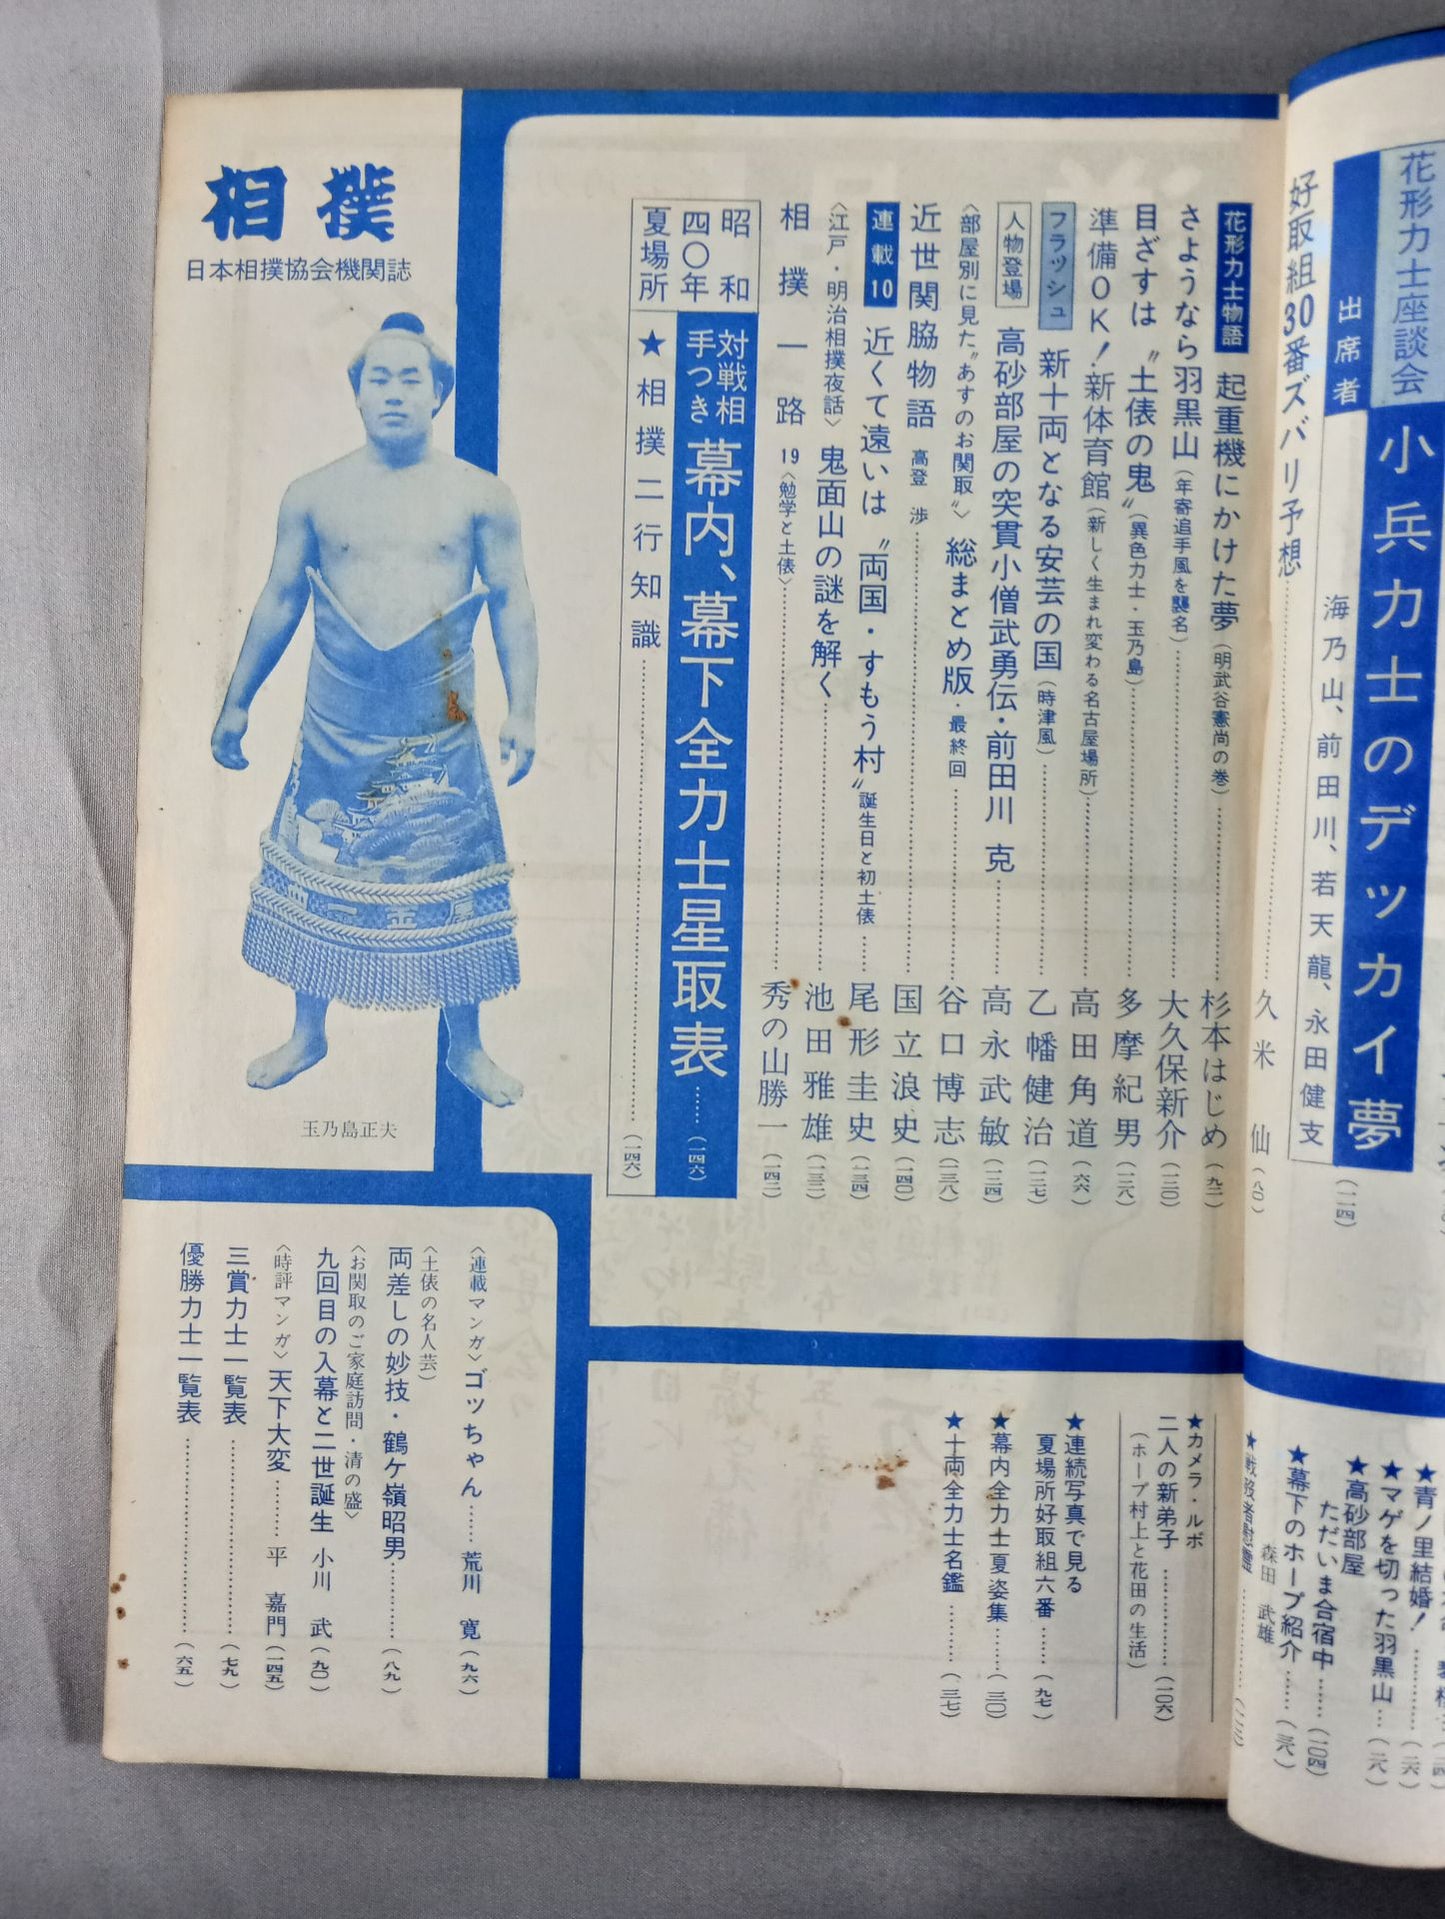 花形力士座談会
小兵力士のデッカイ夢
(一一四)
出席者
海乃山、前田川、若天龍、永田健支
好取組30番ズバリ予想……久米仙(八〇)
花形力士物語
起重機にかけた夢(明武谷憲尚の巻)……杉本はじめ(九二)
さようなら羽黒山(年寄追手風を襲名)……大久保新介(一三〇)
目ざすは〝土俵の鬼〟(異色力士・玉乃島)……多摩紀男(一二八)
準備OK!新体育館(新しく生まれ変わる名古屋場所)……高田角道(六六)
フラッシュ
新十両となる安芸の国(時津風)……乙幡健治(一二七)
人物登場
高砂部屋の突貫小僧武勇伝・前田川 克……高永武敏(一二四)
〈部屋別に見た〝あすのお関取〟〉総まとめ版・最終回……谷口博志(一三八)
近世関脇物語 高登 渉……国立浪史(一四〇)
連載10
近くて遠いは〝両国・すもう村〟誕生日と初土俵……尾形圭史(一三四)
〈江戸・明治相撲夜話〉鬼面山の謎を解く……池田雅雄(一三二)
相撲一路 19〈勉学と土俵〉……秀の山勝一(一四二)
昭和四〇年夏場所
対戦相手つき 幕内、幕下全力士星取表……(一四六)
★相撲二行知識……(一四六)
相撲
日本相撲協会機関誌
玉乃島正夫
青ノ里結婚!
★マゲを切った羽黒山…(二六)
★高砂部屋
ただいま合宿中……(一〇四)
★幕下のホープ紹介……
森田 武雄
★カメラ・ルポ
二人の新弟子……(一〇六)
(ホープ村上と花田の生活)
★連続写真で見る
夏場所好取組六番……(九七)
★幕内全力士夏姿集……(三〇)
★十両全力士名鑑……(三七)
〈連載マンガ〉ゴッちゃん……荒川 寛(九六)
〈土俵の名人芸〉
両差しの妙技・鶴ケ嶺昭男……(八九)
〈お関取のご家庭訪問・清の盛〉
九回目の入幕と二世誕生 小川 武(九〇)
〈時評マンガ〉天下大変……平 嘉門(一四五)
三賞力士一覧表……(七九)
優勝力士一覧表……(六五)